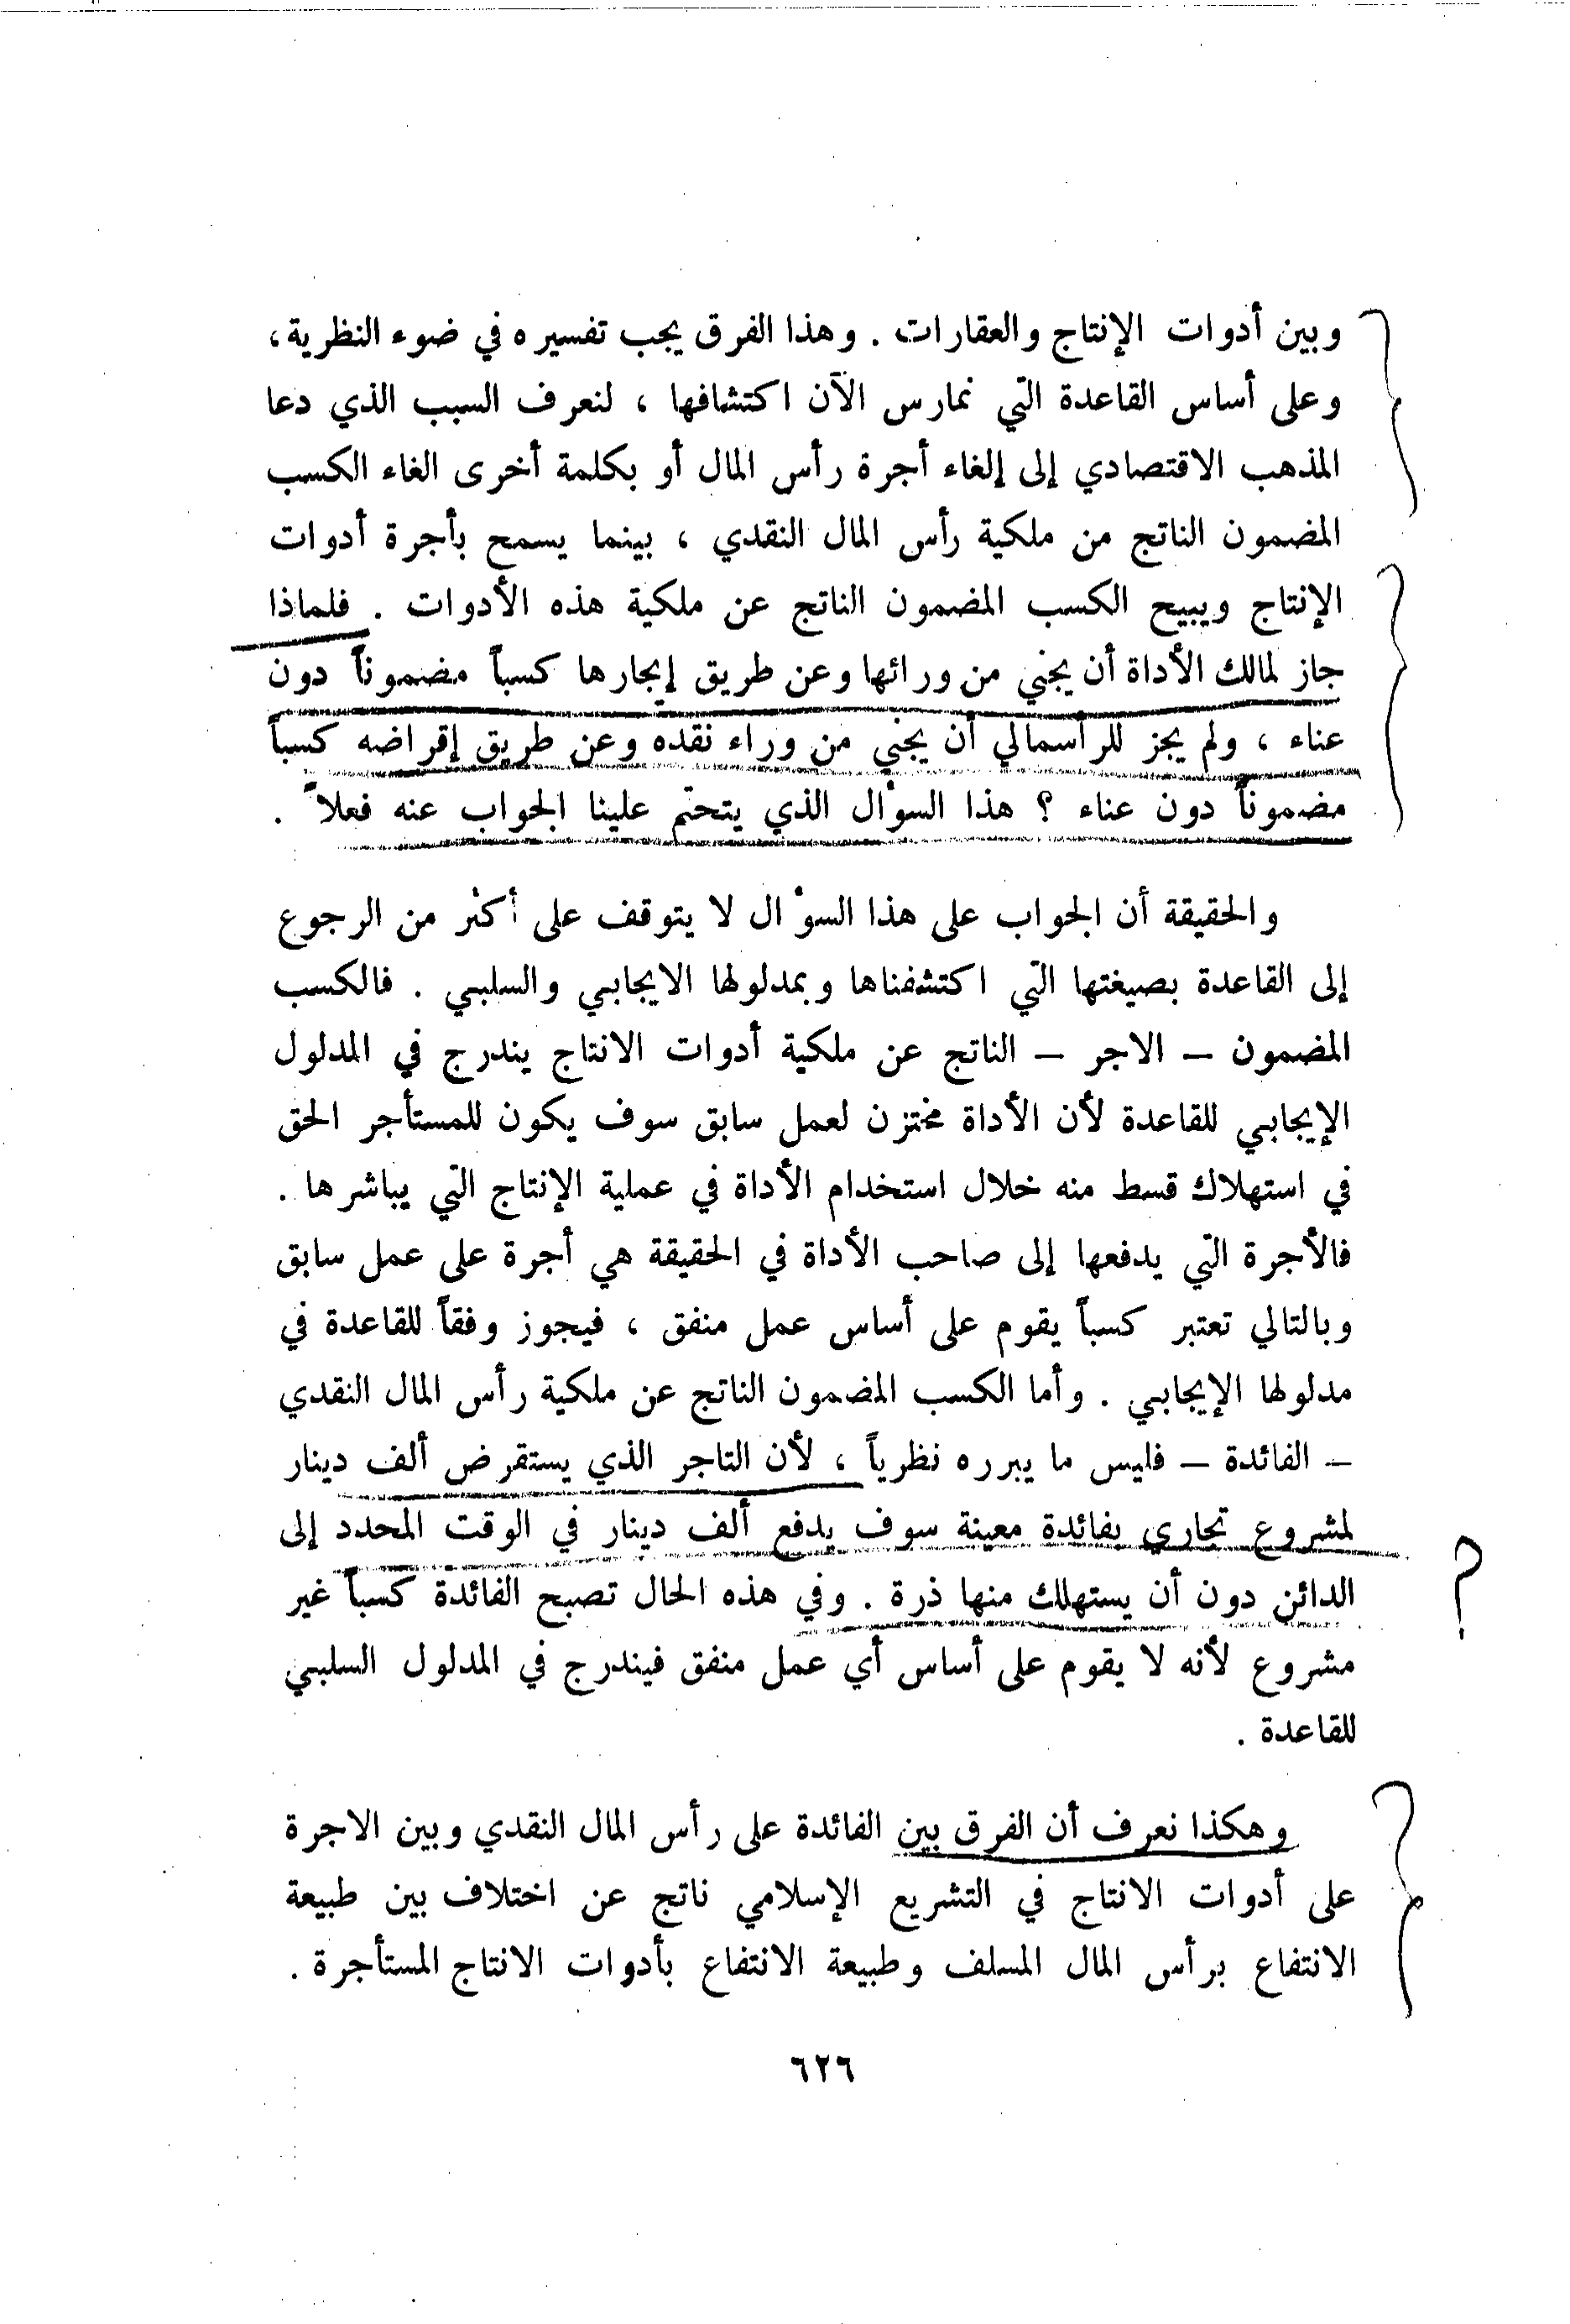 وبين أدوات الإنتاج والعقارات . وهذا الفرق يجب تفسيره في ضوء النظرية ،
وعلى أساس القاعدة التي نمارس الآن اكتشافها ، لنعرف السبب الذي دعا
المذهب الاقتصادي إلى إلغاء أجرة رأس المال أو بكلمة أخرى الغاء الكسب
المضمون الناتج من ملكية رأس المال النقدي ، بينما يسمح بأجرة أدوات
الإنتاج ويبيح الكسب المضمون الناتج عن ملكية هذه الأدوات . فلماذا
جاز لمالك الأداة أن يجني من ورائها وعن طريق إيجارها كسباً مضموناً دون
عناء ، ولم يجز للرأسمالي أن يجني من وراء نقده وعن طريق إقراضه كسباً
مضموناً دون عناء ؟ هذا السؤال الذي يتحتّم علينا الجواب عنه فعلاً .
والحقيقة أن الجواب على هذا السؤال لا يتوقف على أكثر من الرجوع
إلى القاعدة بصيغتها التي اكتشفناها وبمدلولها الايجابي والسلبي . فالكسب
المضمون – الاجر – الناتج عن ملكية أدوات الانتاج يندرج في المدلول
الإيجابي للقاعدة لأن الأداة مختزن لعمل سابق سوف يكون للمستأجر الحق
في استهلاك قسط منه خلال استخدام الأداة في عملية الإنتاج التي يباشرها .
فالأجرة التي يدفعها إلى صاحب الأداة في الحقيقة هي أجرة على عمل سابق
وبالتالي تعتبر كسباً يقوم على أساس عمل منفق ، فيجوز وفقاً للقاعدة في
مدلولها الإيجابي . وأما الكسب المضمون الناتج عن ملكية رأس المال النقدي
– الفائدة – فليس ما يبرره نظرياً ، لأن التاجر الذي يستقرض ألف دينار
لمشروع تجاري بفائدة معينة سوف يدفع ألف دينار في الوقت المحدد إلى
الدائن دون أن يستهلك منها ذرة . وفي هذه الحال تصبح الفائدة كسباً غير
مشروع لأنه لا يقوم على أساس أي عمل منفق فيندرج في المدلول السلبي
للقاعدة .
وهكذا نعرف أن الفرق بين الفائدة على رأس المال النقدي وبين الاجرة
على أدوات الانتاج في التشريع الإسلامي ناتج عن اختلاف بين طبيعة
الانتفاع برأس المال المسلف وطبيعة الانتفاع بأدوات الانتاج المستأجرة .
٦٢٦